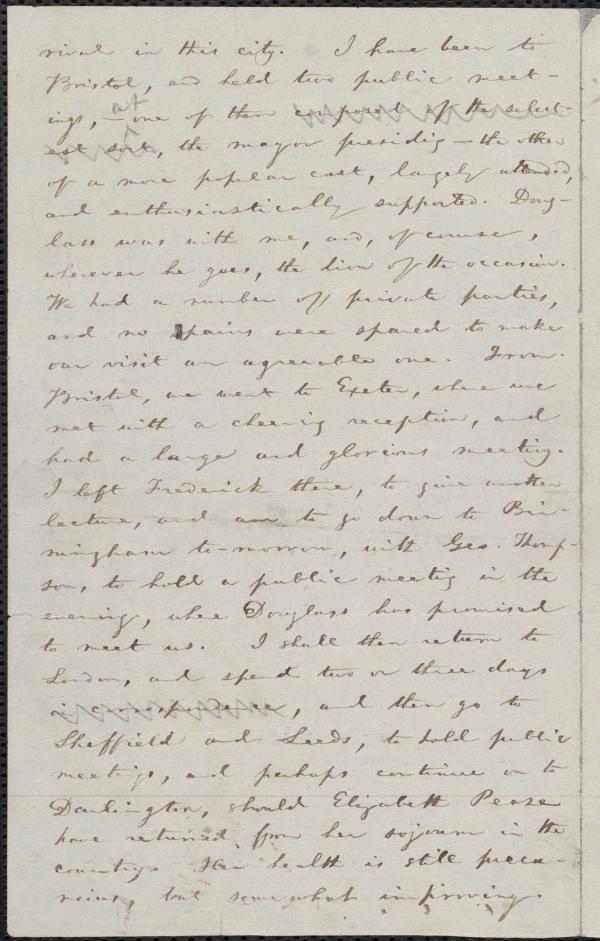 rival in this city. I have been to
Bristol, and held two public meet-
ings, — at one of them composed of the select-
est sort, the mayor presiding — the other
of a more popular cast, largely attended,
and enthusiastically supported. Doug-
lass was with me, and, of course,
wherever he goes, the lion of the occasion.
We had a number of private parties,
and no pains were spared to make
our visit an agreeable one. From
Bristol, we went to Exeter, where we
met with a cheering reception, and
had a large and glorious meeting.
I left Frederick there, to give another
lecture, and am to go down to Bir-
mingham to-morrow, with Geo. Thomp-
son, to hold a public meeting in the
evening, where Douglass has promised
to meet us. I shall then return to
London, and spend two or three days
in correspondence, and then go to
Sheffield and Leeds, to hold public
meetings, and perhaps continue on to
Darlington, should Elizabeth Pease
have returned from her sojourn in the
country. Her health is still preca-
rious, but somewhat improving.